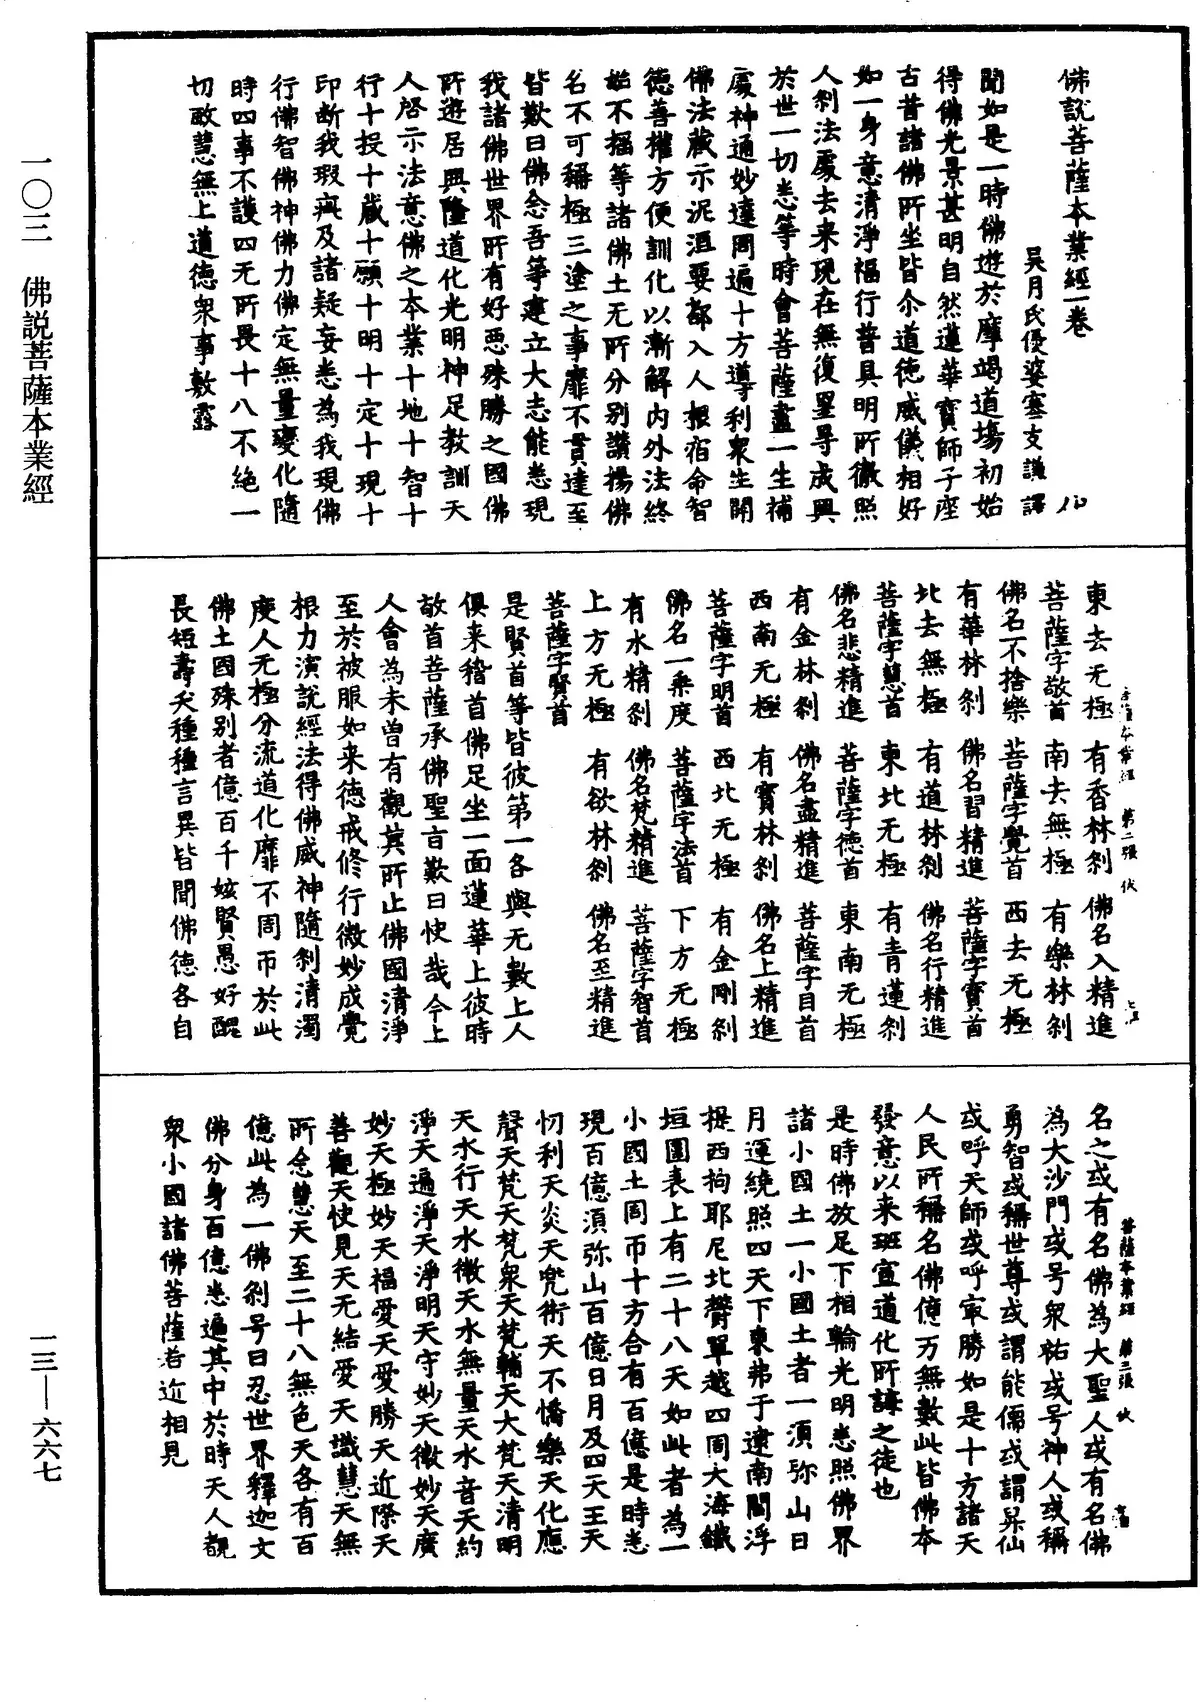 佛說菩薩本業經一卷
吳月氏優婆塞支謙譯
聞如是一時佛遊於摩竭道場初始
得佛光景甚明自然蓮華寶師子座
古昔諸佛所坐皆尒道德威儀相好
如一身意清淨福行普具明所徹照
人剎法處去来現在無復罣㝵成興
於世一切悉等時會菩薩盡一生補
處神通妙達周遍十方導利衆生開
佛法藏示泥洹要都入人根宿命智
德善權方便訓化以漸解内外法終
始不搖等諸佛土无所分别讚揚佛
名不可稱極三塗之事靡不貫達至
皆歎曰佛念吾等建立大志能悉現
我諸佛世界所有好惡殊勝之國佛
所遊居興隆道化光明神足教訓天
人啓示法意佛之本業十地十智十
行十投十藏十願十明十定十現十
印斷我瑕疵及諸疑妄悉為我現佛
行佛智佛神佛力佛定無量變化隨
時四事不護四无所畏十八不絶一
切敏慧無上道德衆事敷露
東去无極 有香林剎 佛名入精進
菩薩字敬首 南去無極 有樂林剎
佛名不捨樂 菩薩字覺首 西去无極
有華林剎 佛名習精進 菩薩字寶首
北去無極 有道林剎 佛名行精進
菩薩字慧首 東北无極 有青蓮剎
佛名悲精進 菩薩字德首 東南无極
有金林剎 佛名盡精進 菩薩字目首
西南无極 有寶林剎 佛名上精進
菩薩字明首 西北无極 有金剛剎
佛名一乘度 菩薩字法首 下方无極
有水精剎 佛名梵精進 菩薩字智首
上方无極 有欲林剎 佛名至精進
菩薩字賢首
是賢首等皆彼第一各與无數上人
俱来稽首佛足坐一面蓮華上彼時
敬首菩薩承佛聖旨歎曰快哉今上
人會為未曽有觀其所止佛國清淨
至於被服如来德戒修行微妙成覺
根力演說經法得佛威神隨剎清濁
度人无極分流道化靡不周帀於此
佛土國殊别者億百千姟賢愚好醜
長短壽夭種種言異皆聞佛德各自
菩薩本業經 第二張 伏
名之或有名佛為大聖人或有名佛
為大沙門或号衆祐或号神人或稱
勇智或稱世尊或謂能儒或謂昇仙
或呼天師或呼冣勝如是十方諸天
人民所稱名佛億万無數此皆佛本
發意以来班宣道化所說之徒也
是時佛放足下相輪光明悉照佛界
諸小國土一小國土者一須弥山日
月運繞照四天下東弗于逮南閻浮
提西拘耶尼北欝單越四周大海鐵
垣圍表上有二十八天如此者為一
小國土周帀十方合有百億是時悉
現百億須弥山百億日月及四天王天
忉利天炎天兜術天不憍樂天化應
聲天梵天梵衆天梵輔天大梵天清明
天水行天水微天水無量天水音天約
淨天遍淨天淨明天守妙天微妙天廣
妙天極妙天福愛天愛勝天近際天
善觀天快見天无結愛天識慧天無
所念慧天至二十八無色天各有百
億此為一佛剎号曰忍世界釋迦文
佛分身百億悉遍其中於時天人覩
衆小國諸佛菩薩者近相見
菩薩本業經 第三張 伏
一〇三 佛説菩薩本業經
一三—六六七